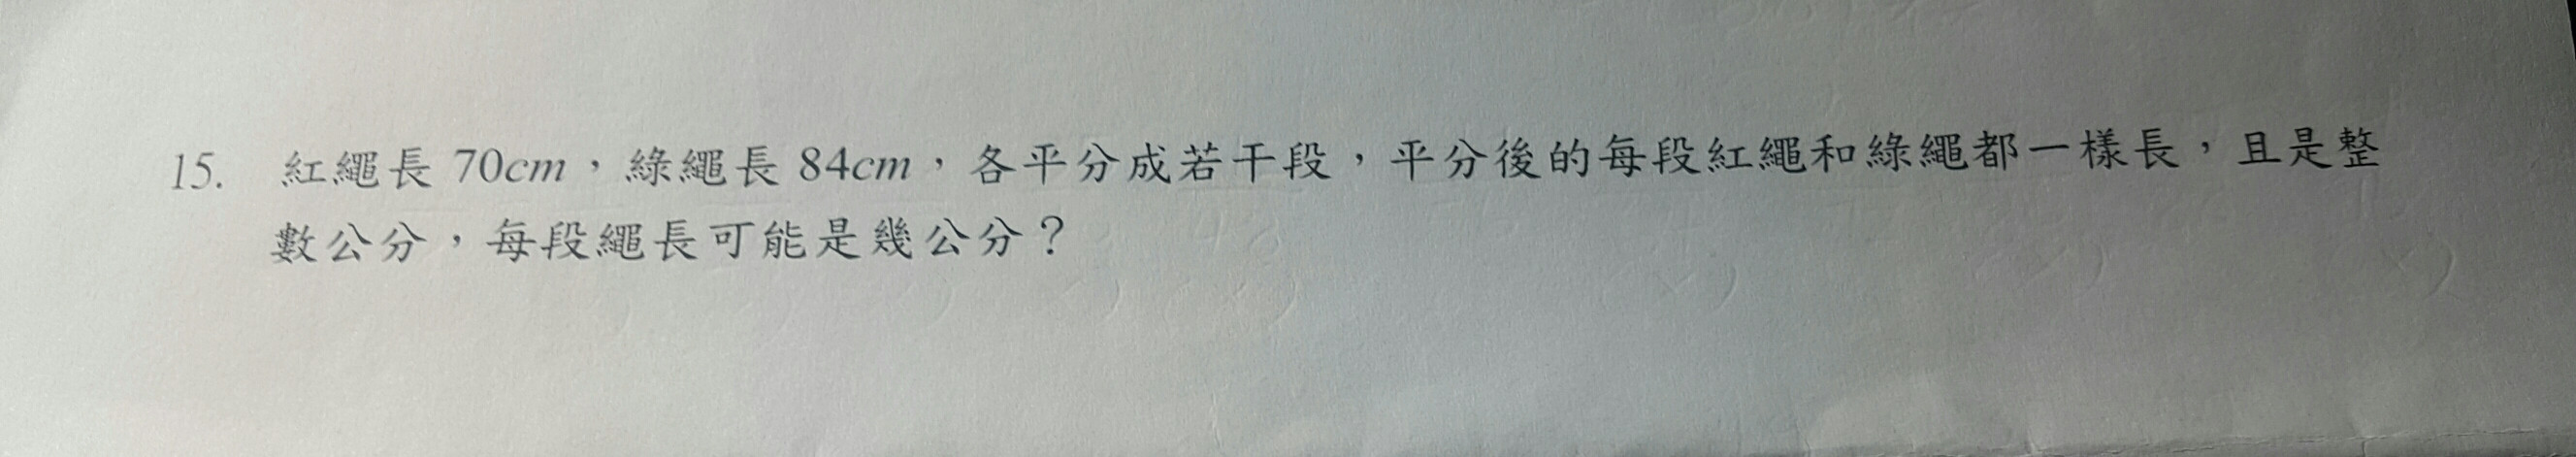 15. 紅繩長 70cm，綠繩長 84cm，各平分成若干段，平分後的每段紅繩和綠繩都一樣長，且是整
數公分，每段繩長可能是幾公分？